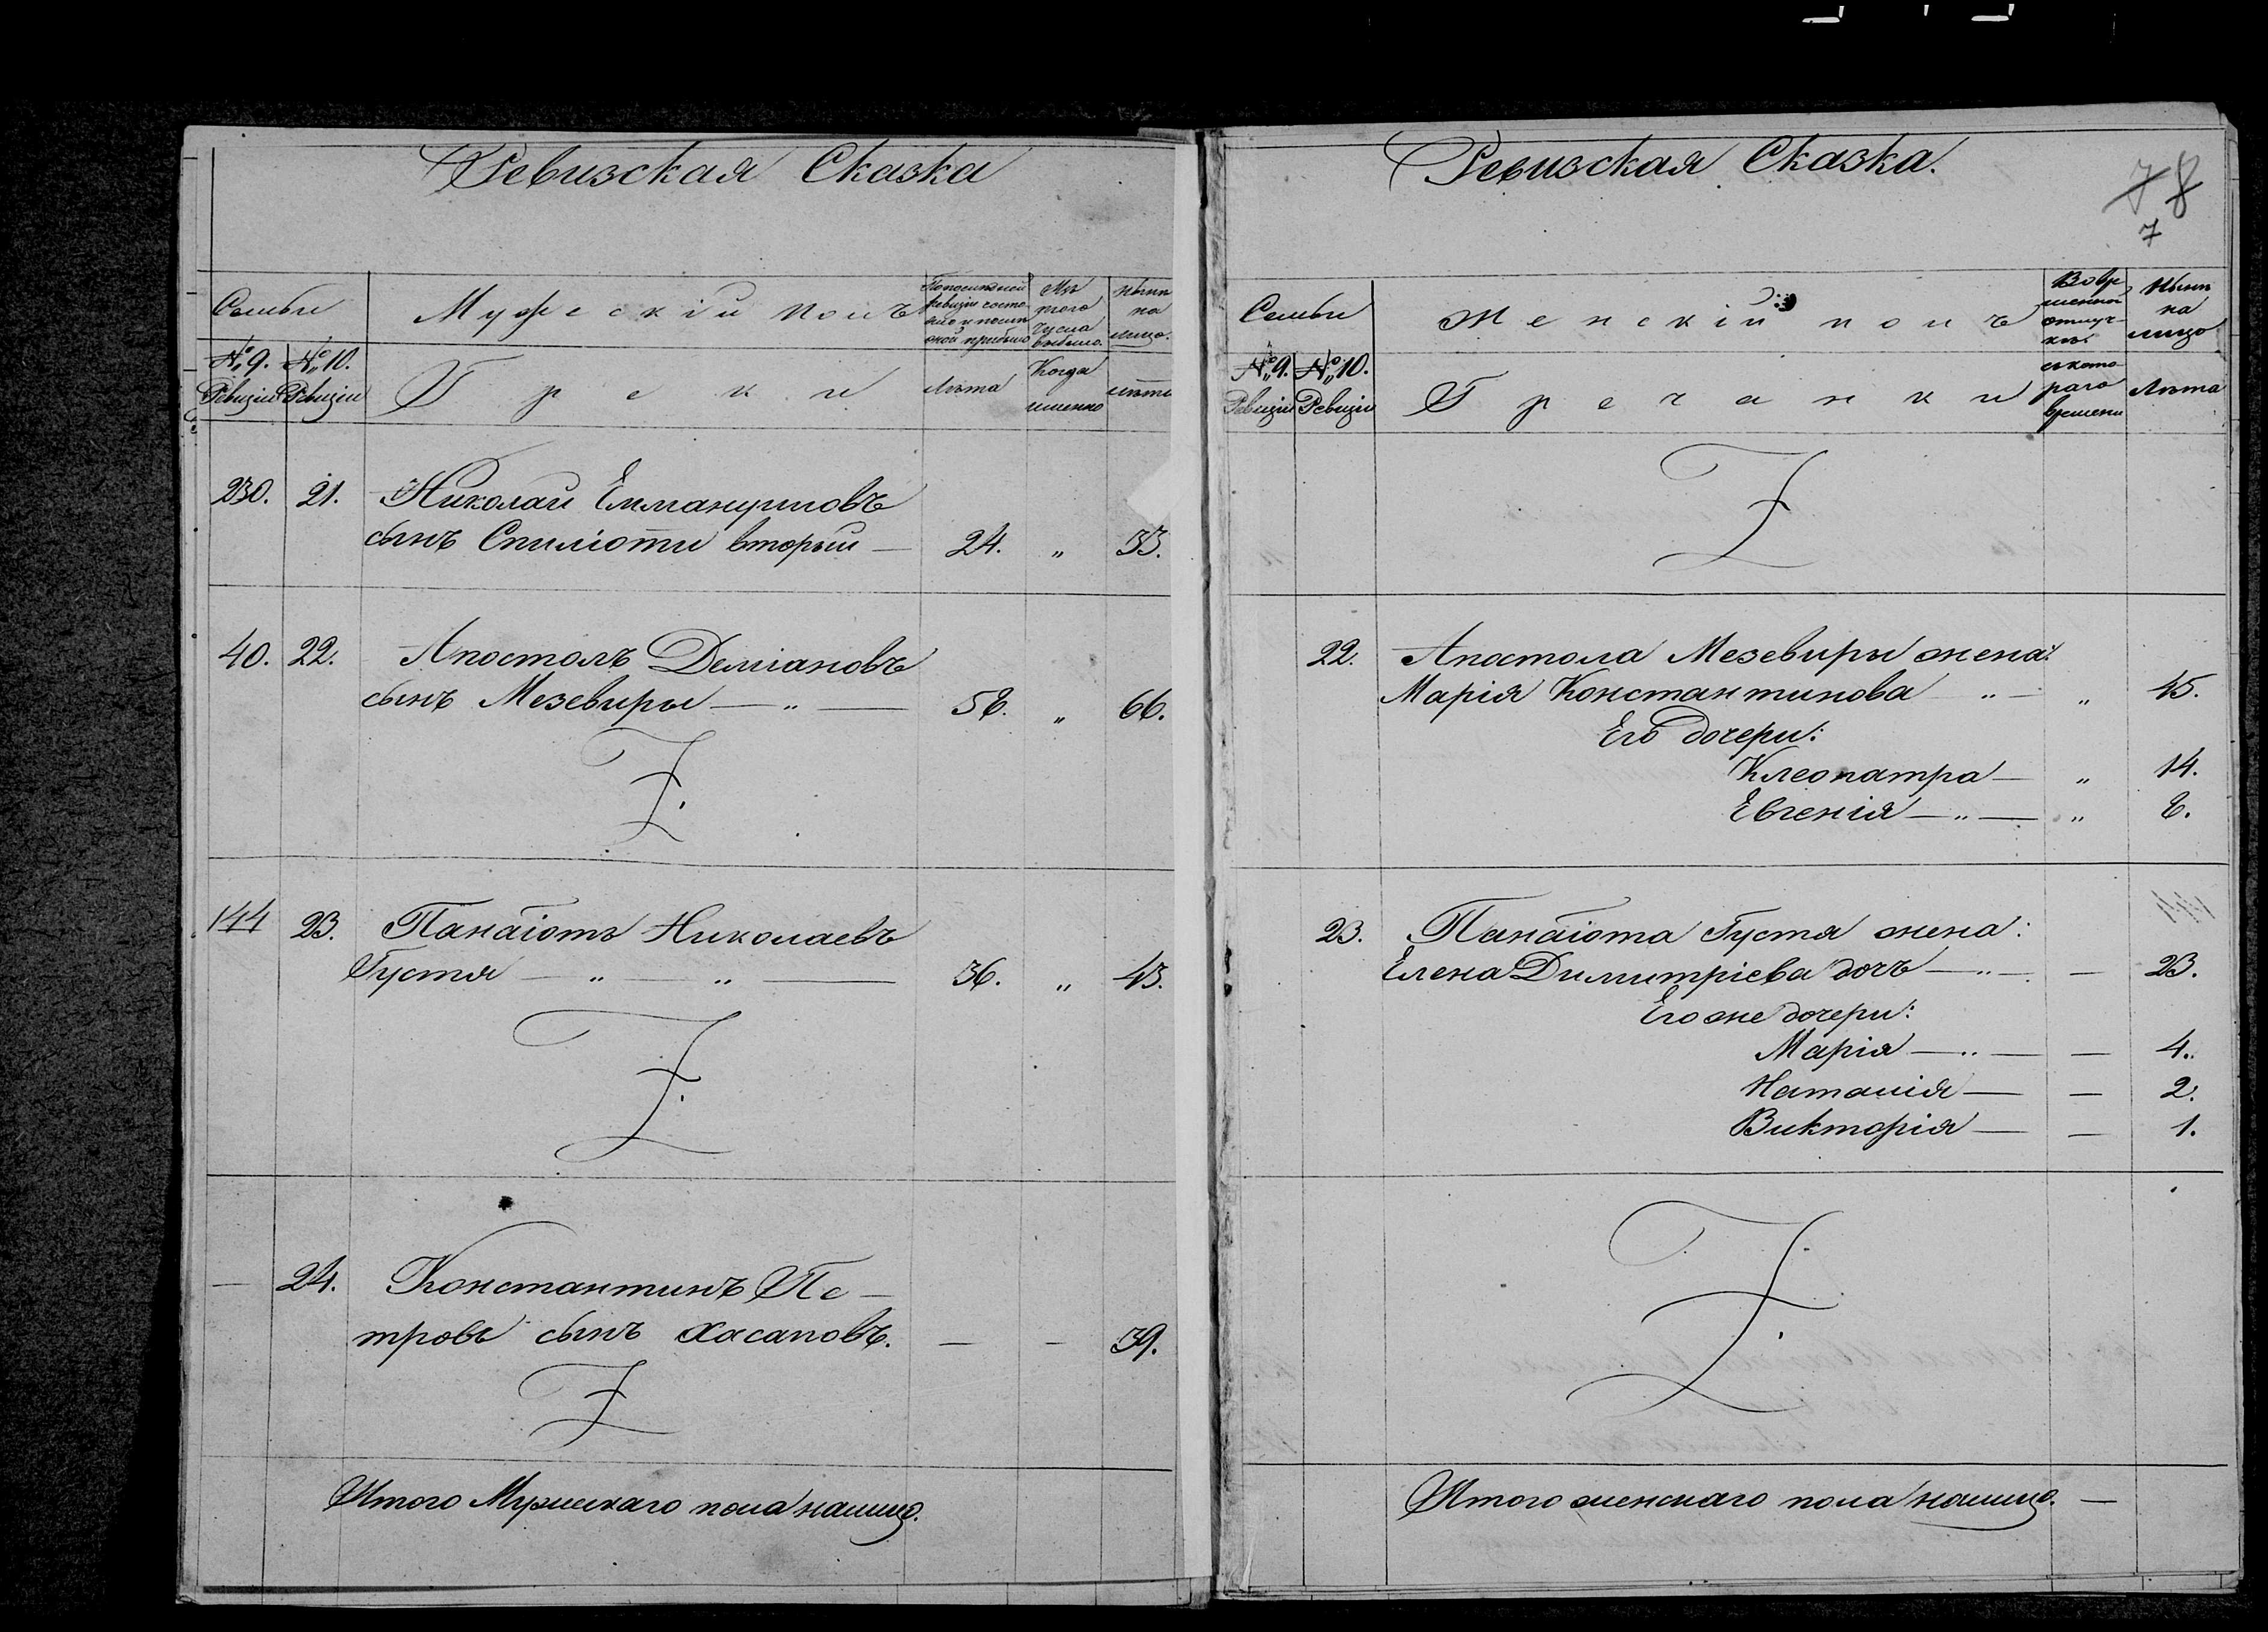 Ревизская Сказка
Семьи
Мужескій полъ
По последней ревизіи состояло и после оной прибыло
Изъ того числа выбыло.
Нынѣ на лицо.
№ 9. Ревизіи
№ 10. Ревизіи
Греки
Лѣта
Когда именно
лѣта
230. 21. Николай Еммануиловъ
сынъ Спиліоти вторый — 24. „ 33.
40. 22. Апостолъ Деміановъ
сынъ Мезевиры — „ — 58. „ 66.
144 23. Панаіотъ Николаевъ
Густя — „ — „ — 36. „ 43.
— 24. Константинъ Пе-
тровъ сынъ Хасаповъ. — — 39.
Итого Мужескаго пола налицо.
Ревизская Сказка.
7 8
7
Семьи
Женскій полъ
Во временной отлучкѣ.
Нынѣ на лицо
№ 9. Ревизіи
№ 10. Ревизіи
Гречанки
съ котораго времени
Лѣта
22. Апостола Мезевиры жена:
Марія Константинова „ — „ 45.
Его дочери:
Клеопатра — „ 14.
Евгенія — „ — „ 8.
23. Панаіота Густя жена:
Елена Димитріева дочь — „ — — 23.
Его же дочери:
Марія — „ — — 4.
Наталія — — 2.
Викторія — — 1.
Итого женскаго пола налицо. —